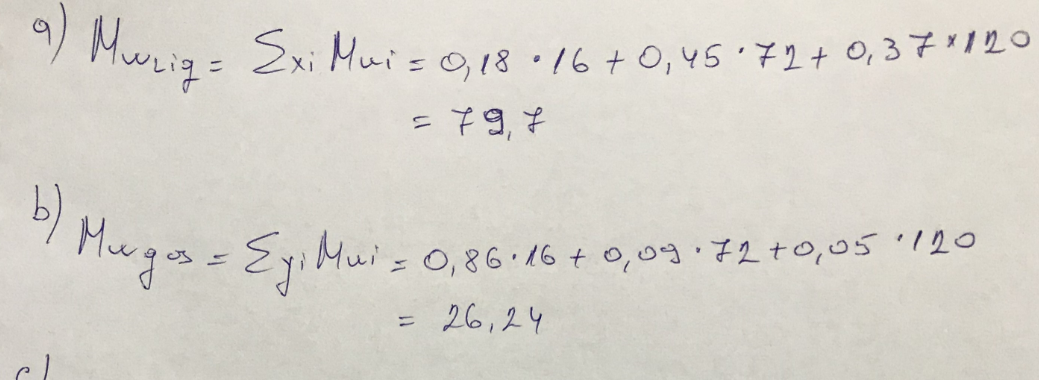 a) Mwliq = Σxi Mwi = 0,18 · 16 + 0,45 · 72 + 0,37 × 120
= 79,7
b) Mwgas = Σyi Mwi = 0,86 · 16 + 0,09 · 72 + 0,05 · 120
= 26,24